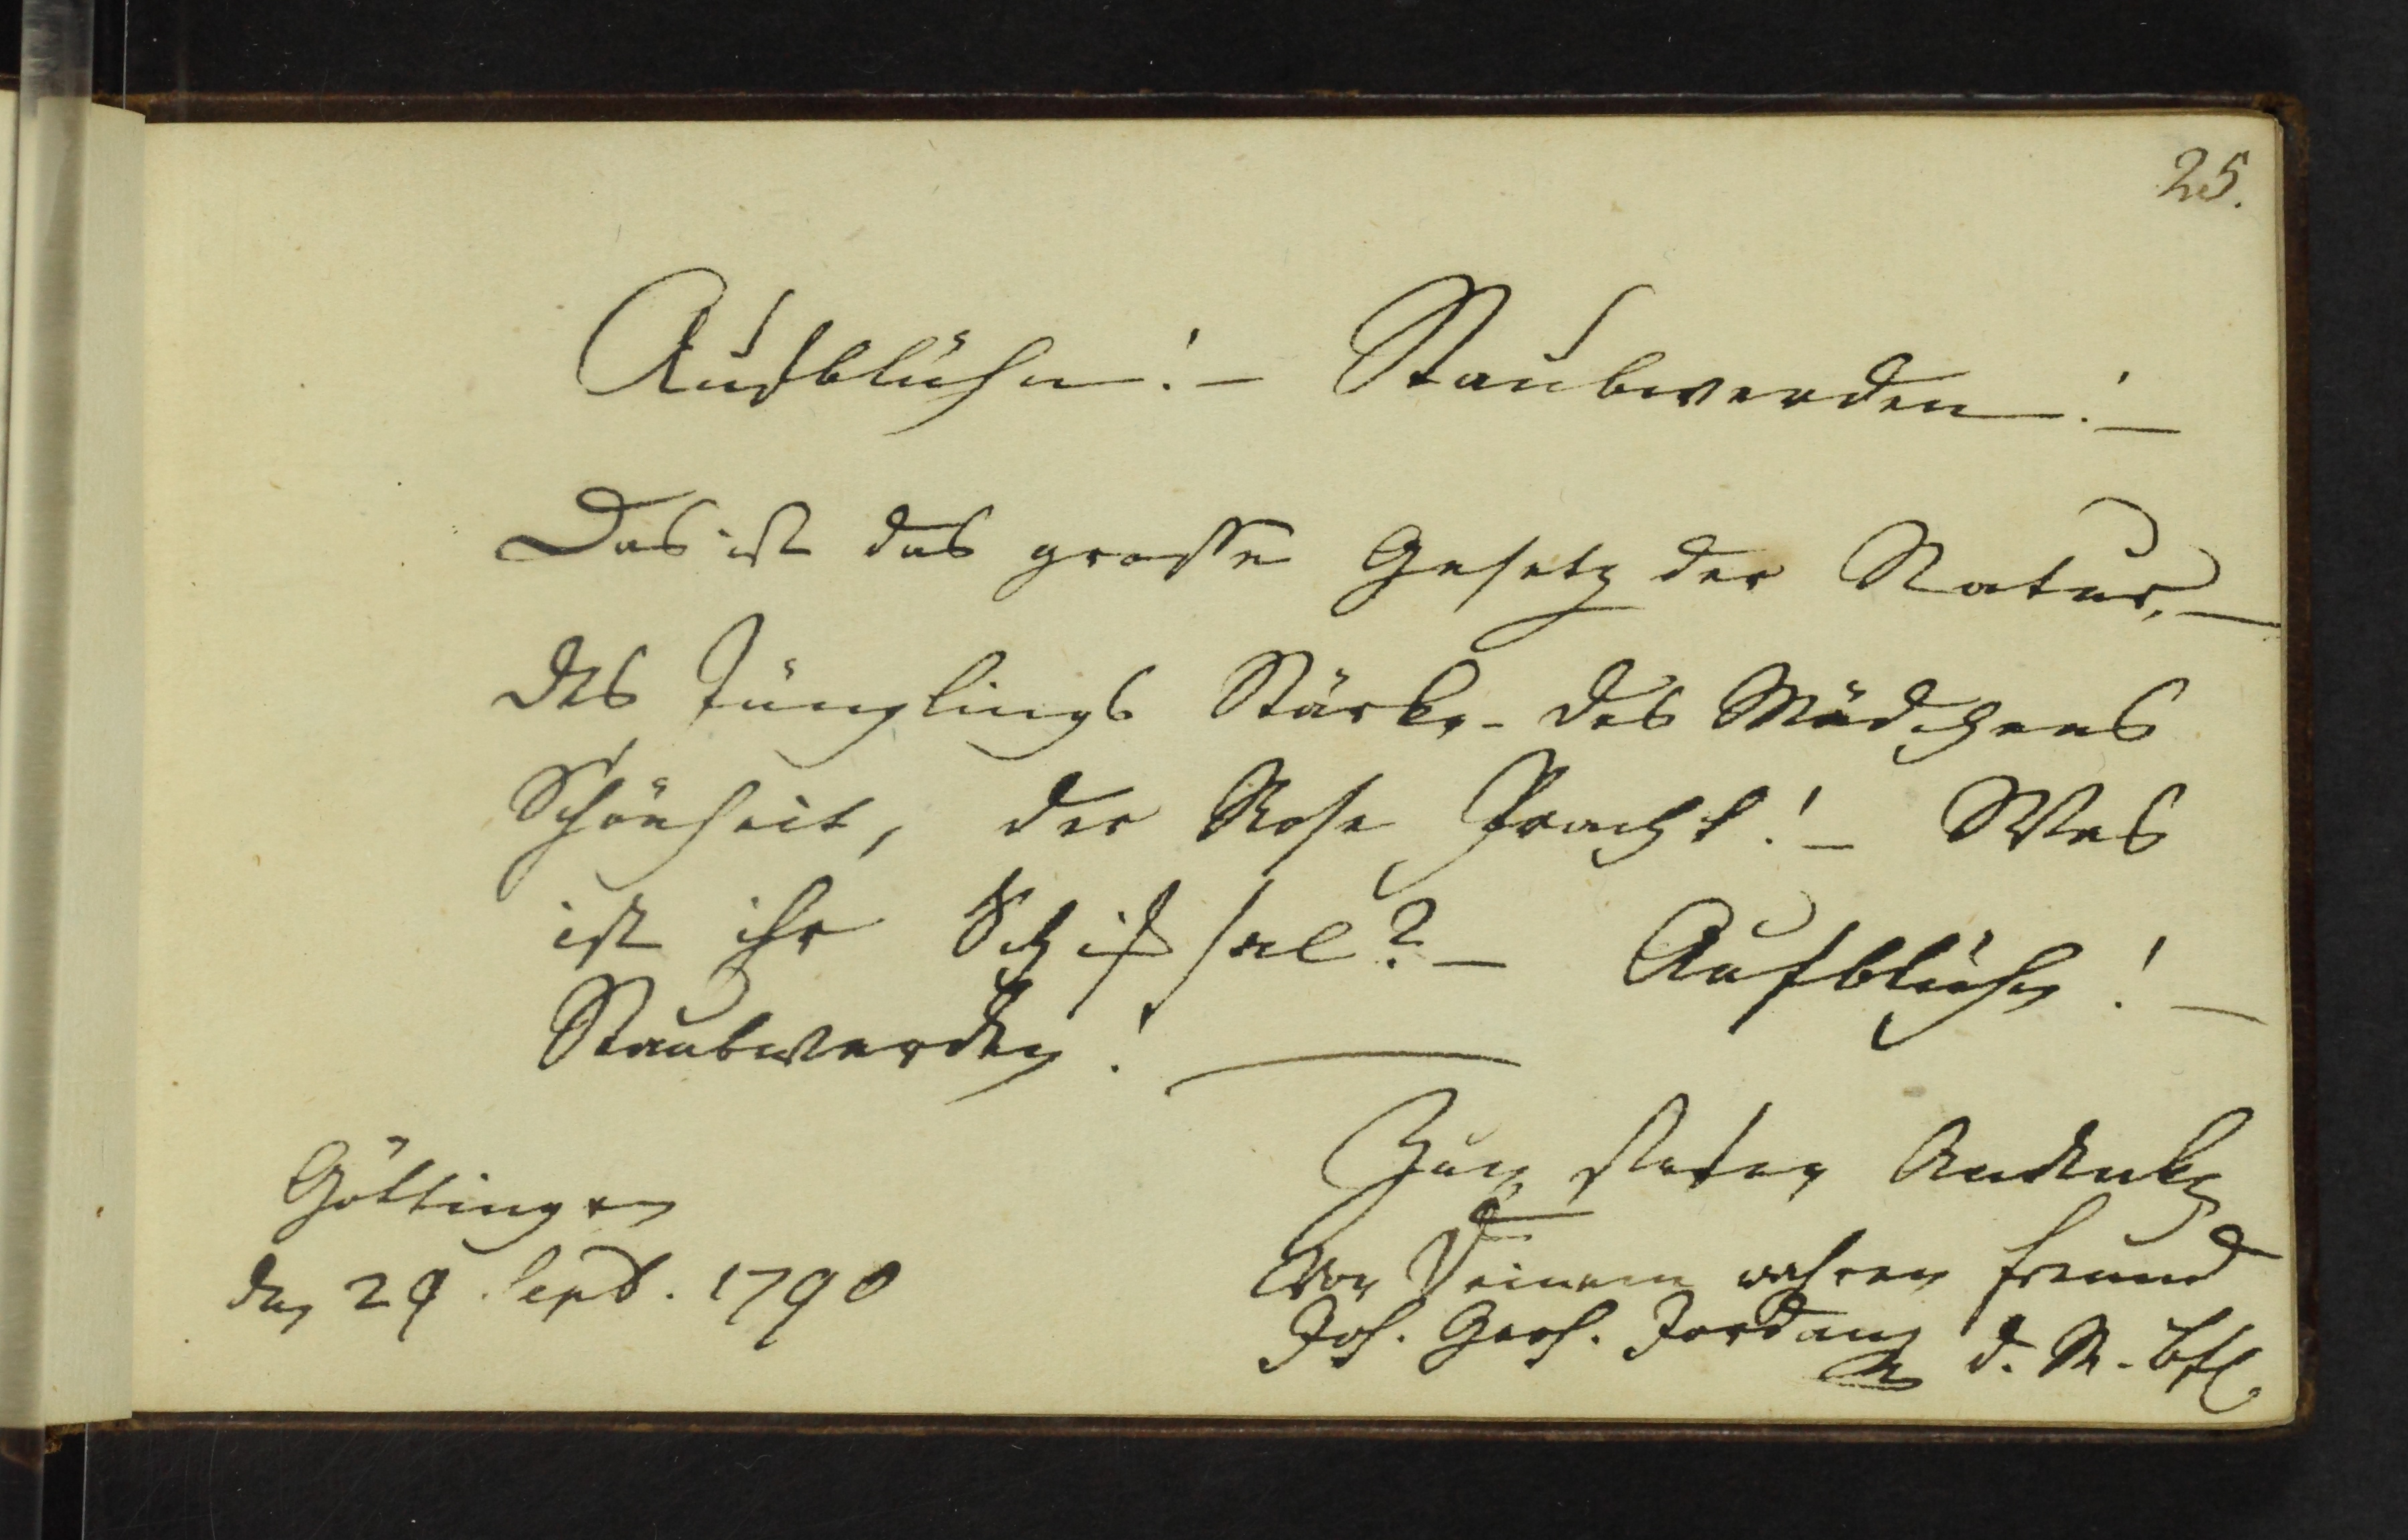 25.
Aufblühn! – Staubwerden! –
Das ist das grosse Gesetz der Natur, –
des Jünglings Stärke – des Mädchens
Schönheit, der Rose Pracht! – Was
ist ihr Schiksal? – Aufblühen! –
Staubwerden!
Zum steten Andenken
von Deinem wahren Freund
Joh. Jordan d. A. Bfl.
Göttingen
den 29 Sept. 1790